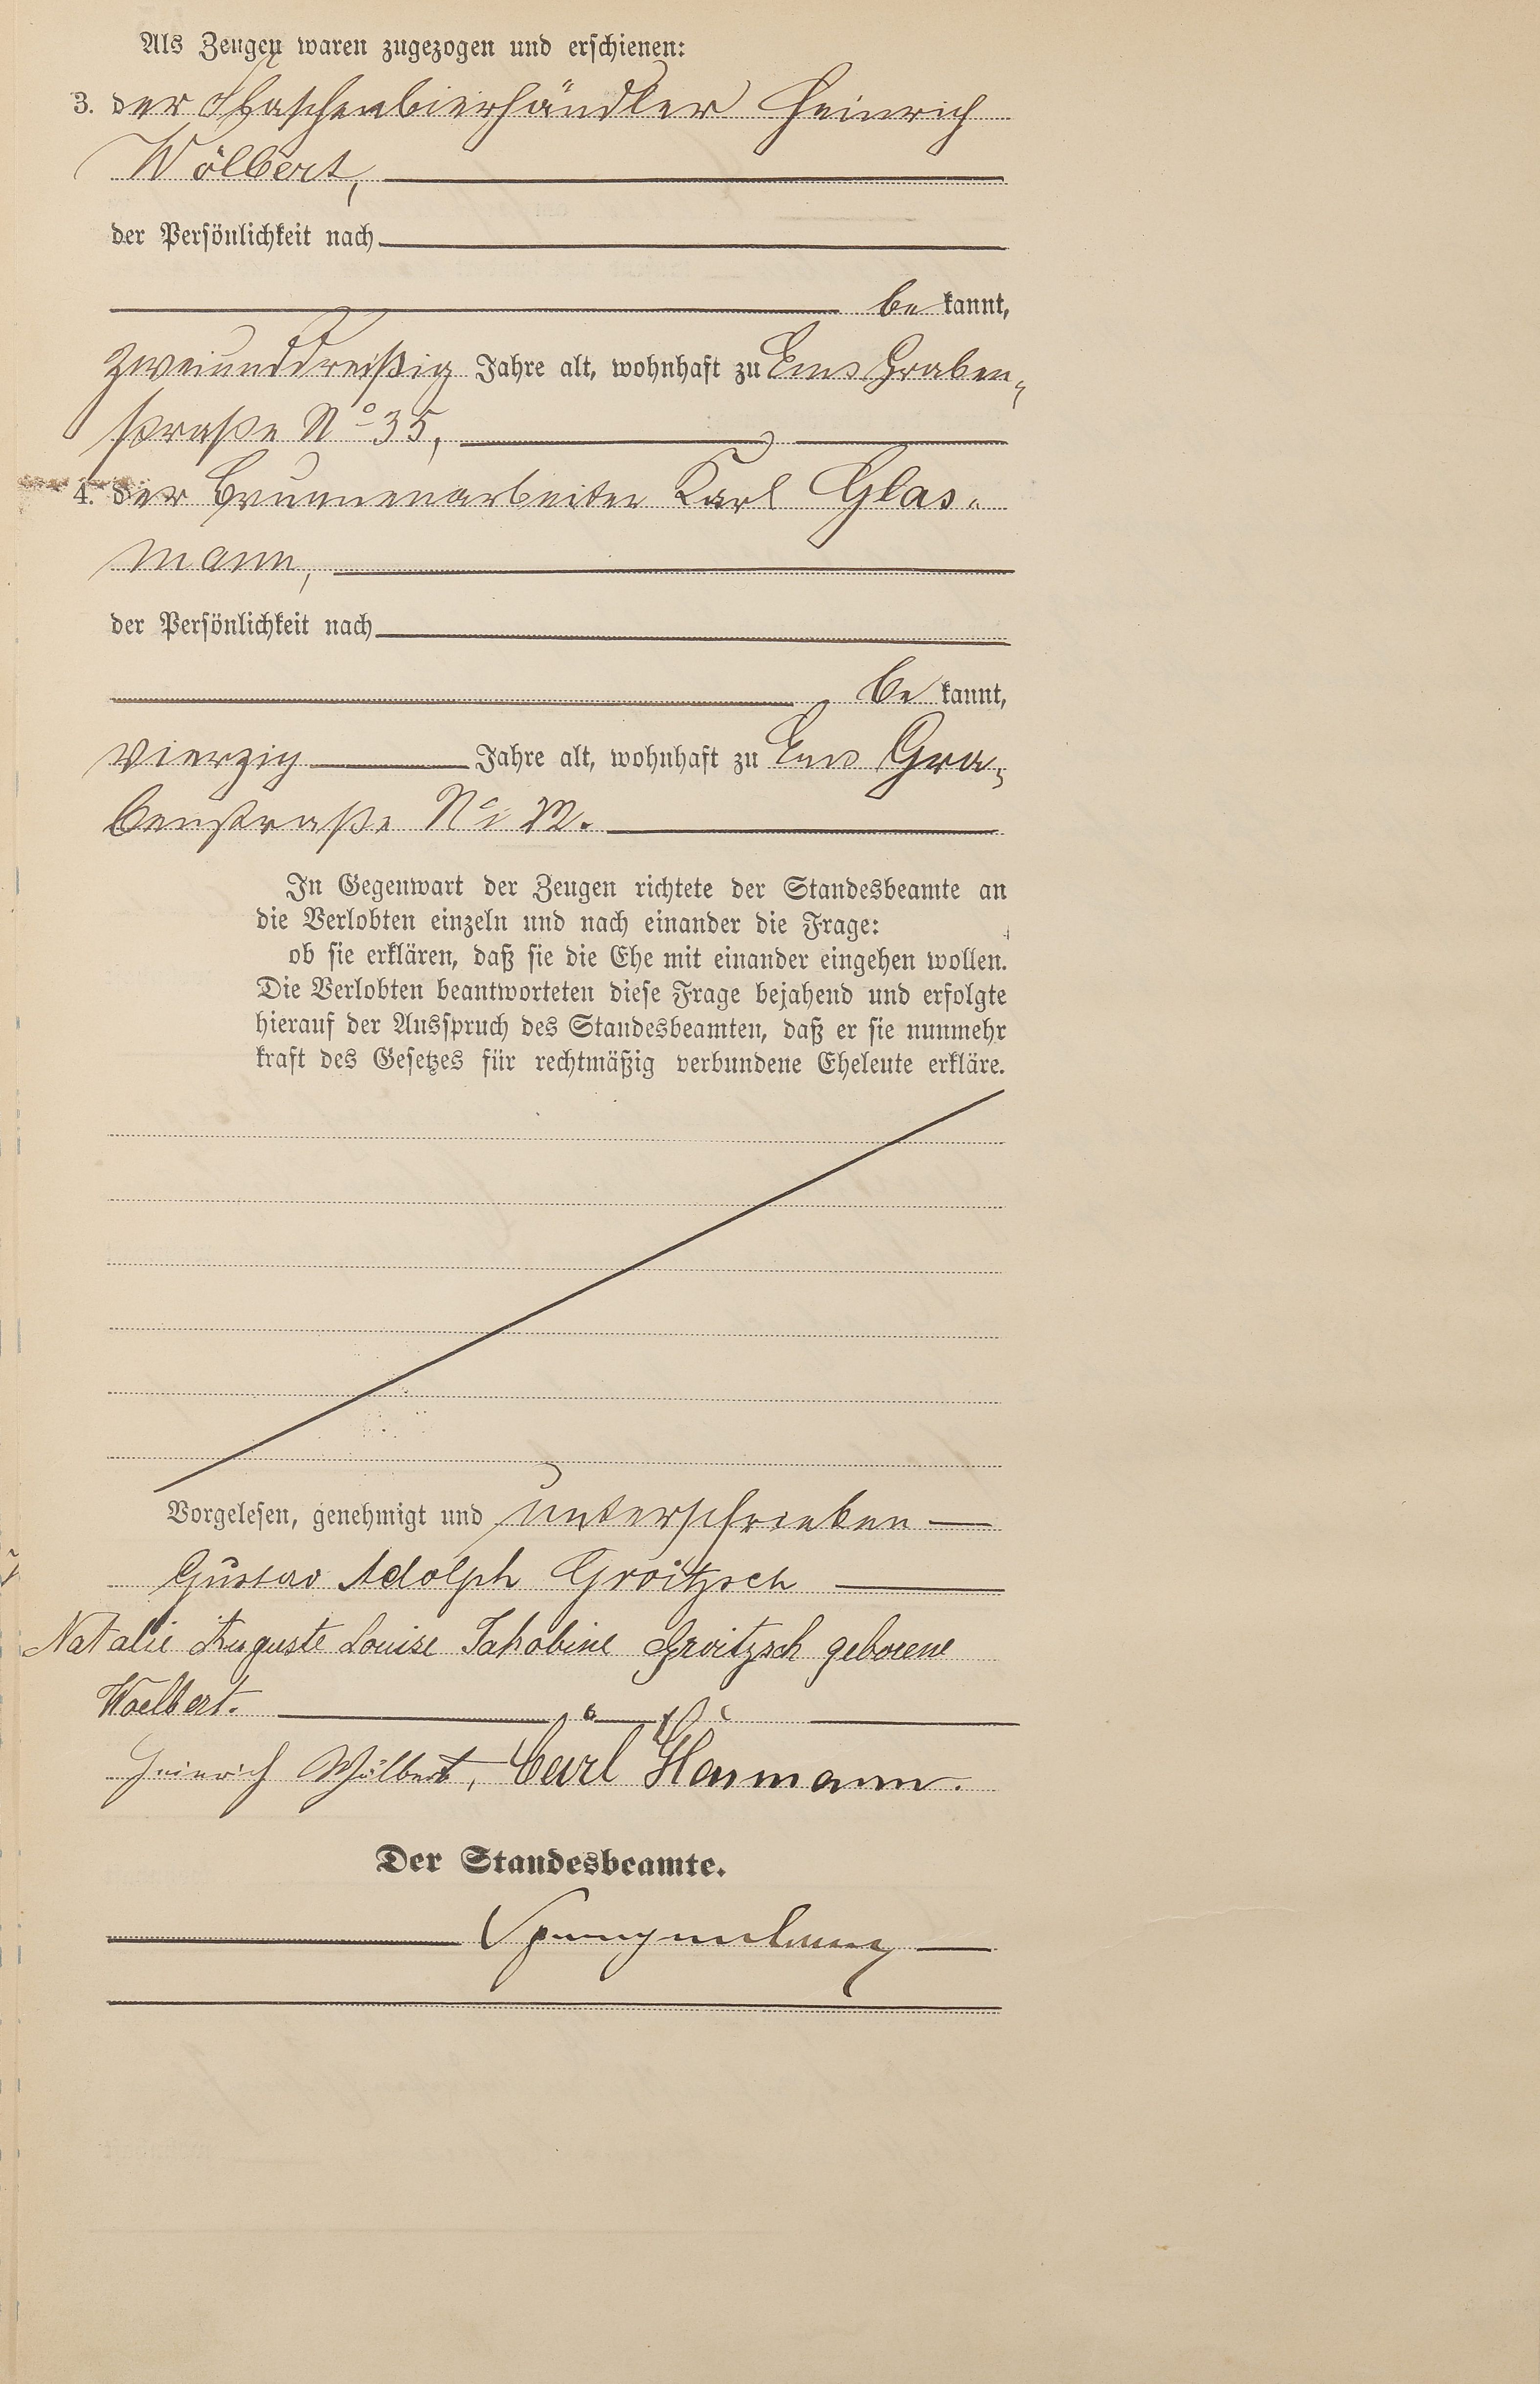 Als Zeugen waren zugezogen und erschienen:
3. der Flaschenbierhändler Heinrich
Wölbert,
der Persönlichkeit nach
be kannt,
zweiunddreißig Jahre alt, wohnhaft zu Ems Graben-
straße No 35,
4. der Brunnenarbeiter Karl Glas-
mann,
der Persönlichkeit nach
be kannt,
vierzig Jahre alt, wohnhaft zu Ems Gra-
benstraße No
In Gegenwart der Zeugen richtete der Standesbeamte an
die Verlobten einzeln und nach einander die Frage:
ob sie erklären, daß sie die Ehe mit einander eingehen wollen.
Die Verlobten beantworteten diese Frage bejahend und erfolgte
hierauf der Ausspruch des Standesbeamten, daß er sie nunmehr
kraft des Gesetzes für rechtmäßig verbundene Eheleute erkläre.
Vorgelesen, genehmigt und unterschrieben
Gustav Adolph Groitzsch
Natalie Auguste Louise Jakobine Groitzsch geborene
Woelbert.
Heinrich Wölbert, Carl Glasmann.
Der Standesbeamte.